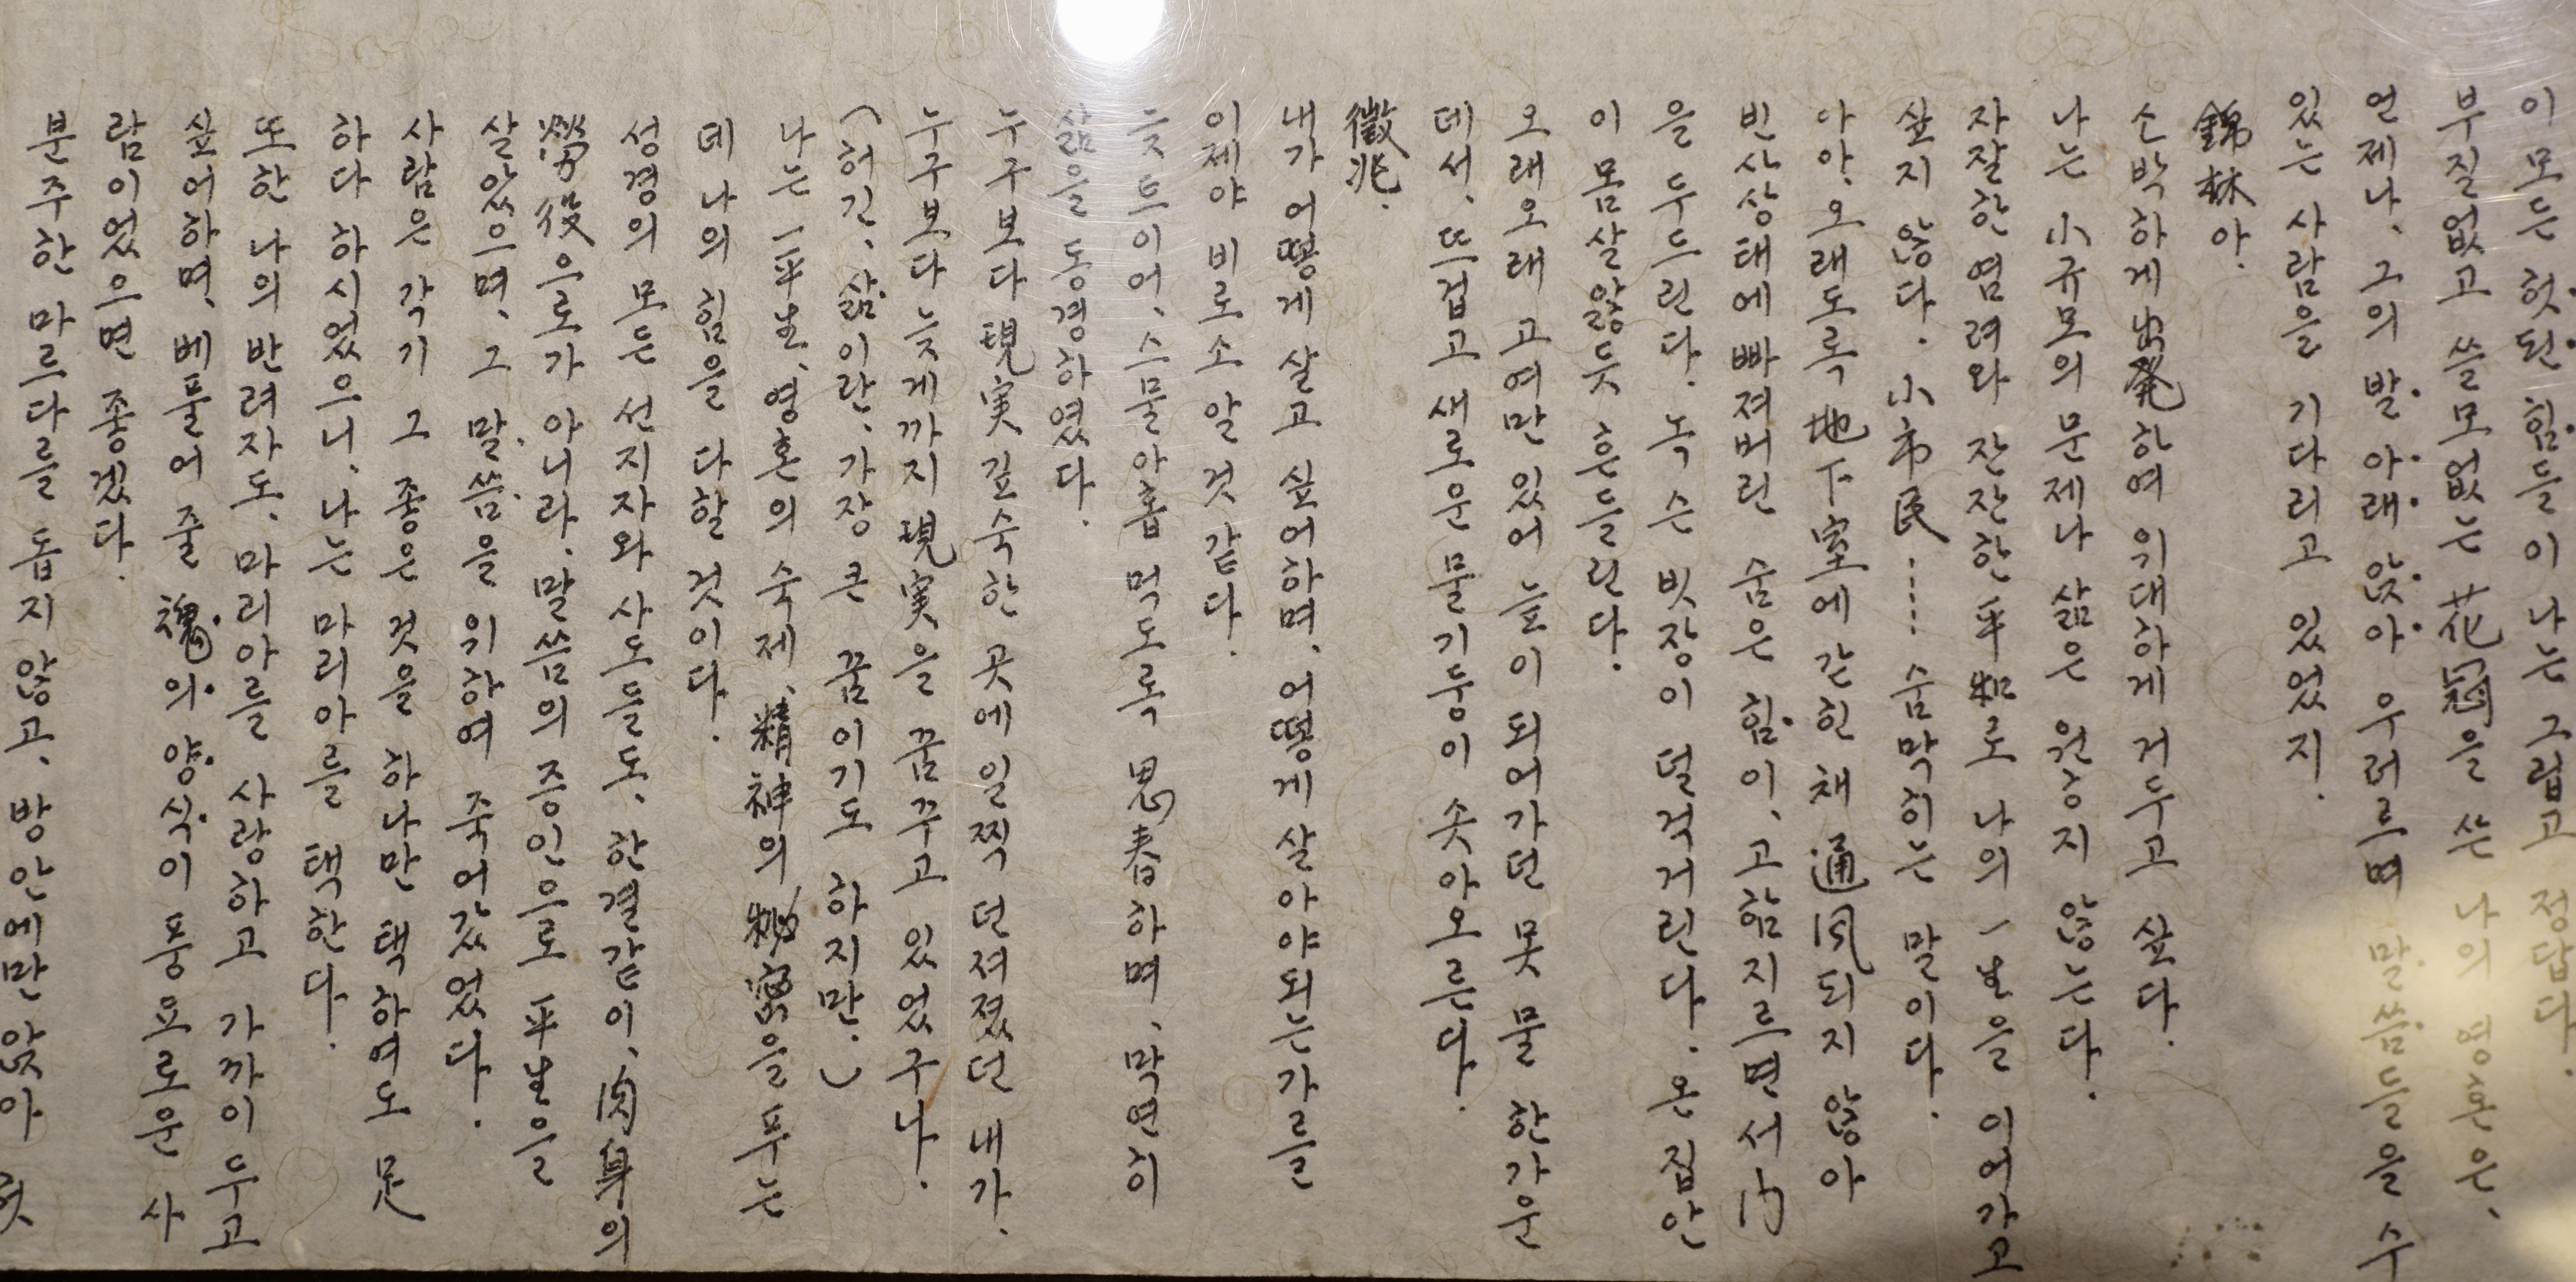 이 모든 헛된 힘들이 나는 그립고 정답다.
부질없고 쓸모없는 花冠을 쓴 나의 영혼은,
언제나, 그의 발 아래 앉아 우러르며 말씀들을 수
있는 사람을 기다리고 있었지.
錦林아.
소박하게 出発하여 위대하게 거두고 싶다.
나는 小규모의 문제나 삶은 원하지 않는다.
자잘한 염려와 잔잔한 平和로 나의 一生을 이어가고
싶지 않다. 小市民…… 숨막히는 말이다.
아아. 오래도록 地下室에 갇힌 채 通風되지 않아
빈사상태에 빠져버린 숨은 힘이, 고함지르면서 門
을 두드린다. 녹슨 빗장이 덜걱거린다. 온 집안
이 몸살앓듯 흔들린다.
오래오래 고여만 있어 늪이 되어가던 못물 한가운
데서, 뜨겁고 새로운 물기둥이 솟아오른다.
徵兆.
내가 어떻게 살고 싶어하며, 어떻게 살아야되는가를
이제야 비로소 알 것 같다.
늦트이어, 스물아홉 먹도록 思春하며, 막연히
삶을 동경하였다.
누구보다 現実 깊숙한 곳에 일찍 던져졌던 내가,
누구보다 늦게까지 現実을 꿈꾸고 있었구나.
(허긴, 삶이란, 가장 큰 꿈이기도 하지만.)
나는 一平生, 영혼의 숙제, 精神의 秘密을 푸는
데 나의 힘을 다할 것이다.
성경의 모든 선지자와 사도들도, 한결같이, 肉身의
勞役으로가 아니라, 말씀의 증인으로 平生을
살았으며, 그 말씀을 위하여 죽어갔었다.
사람은 각기 그 좋은 것을 하나만 택하여도 足
하다 하시었으니, 나는 마리아를 택한다.
또한 나의 반려자도, 마리아를 사랑하고 가까이 두고
싶어하며, 베풀어 줄 魂의 양식이 풍요로운 사
람이었으면 좋겠다.
분주한 마르다를 돕지 않고, 방안에만 앉아